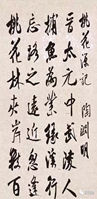 桃花源记 陶渊明
晋太元中武陵人
捕鱼为业缘溪行
忘路之远近忽逢
桃花林夹岸数百